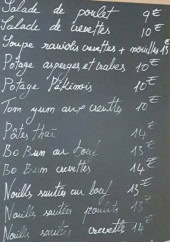 Salade de poulet 9€
Salade de crevettes 10€
Soupe raviolis crevettes + nouilles 13€
Potage asperges et crabes 10€
Potage Pékinois 10€
Tom yum aux crevettes 10€
Pates thaï 14€
Bo Bun au bœuf 13€
Bo Bun crevettes 14€
Nouilles sautées au bœuf 13€
Nouilles sautées poulet 13€
Nouilles sautées crevettes 14€